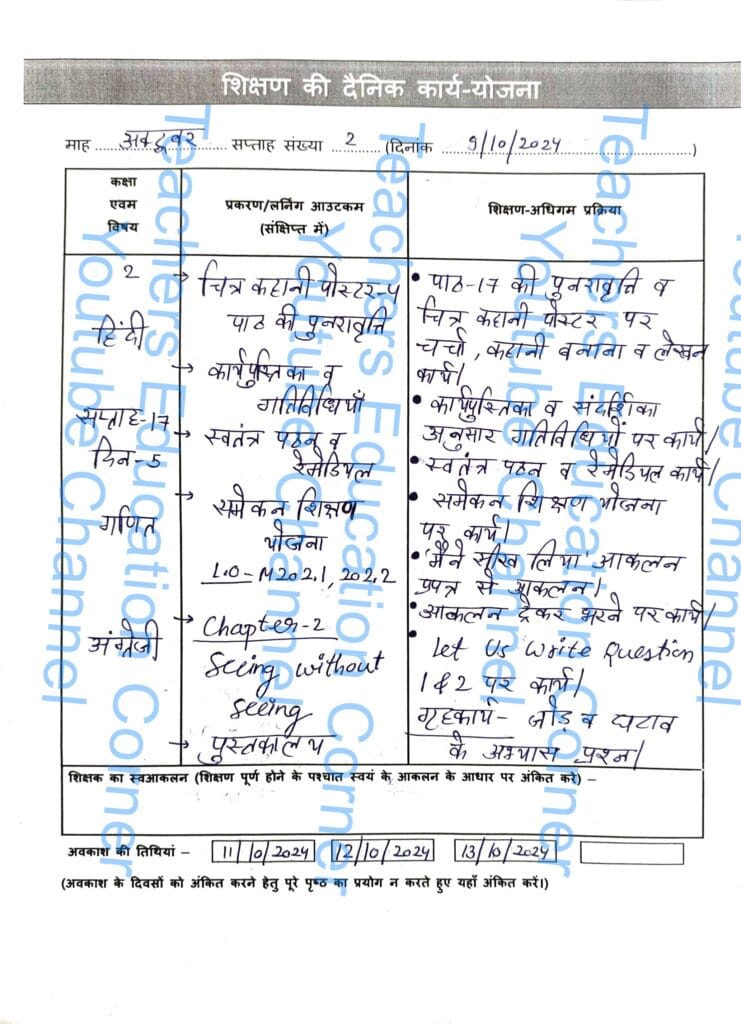 शिक्षण की दैनिक कार्य-योजना
माह अक्टूबर सप्ताह संख्या 2 (दिनांक 9/10/2024)
कक्षा एवम विषय
प्रकरण/लर्निंग आउटकम (संक्षिप्त में)
शिक्षण-अधिगम प्रक्रिया
2
हिंदी
सप्ताह-17
दिन-5
→ चित्र कहानी पोस्टर-4
पाठ की पुनरावृत्ति
→ कार्यपुस्तिका व
गतिविधियाँ
→ स्वतंत्र पठन व
रेमेडियल
• पाठ-17 की पुनरावृत्ति व
चित्र कहानी पोस्टर पर
चर्चा, कहानी बनाना व लेखन
कार्य।
• कार्यपुस्तिका व संदर्शिका
अनुसार गतिविधियों पर कार्य।
• स्वतंत्र पठन व रेमेडियल कार्य।
गणित
→ समेकन शिक्षण
योजना
L.O-M202.1, 202.2
• समेकन शिक्षण योजना
पर कार्य।
• 'मैने सीख लिया' आकलन
प्रपत्र से आकलन।
• आकलन ट्रैकर भरने पर कार्य।
अंग्रेजी
→ Chapter-2
Seeing without
seeing
→ पुस्तकालय
• Let Us Write Question
1 & 2 पर कार्य।
गृहकार्य- जोड़ व घटाव
के अभ्यास प्रश्न।
शिक्षक का स्वआकलन (शिक्षण पूर्ण होने के पश्चात स्वयं के आकलन के आधार पर अंकित करें) –
अवकाश की तिथियां – 11/10/2024 12/10/2024 13/10/2024
(अवकाश के दिवसों को अंकित करने हेतु पूरे पृष्ठ का प्रयोग न करते हुए यहाँ अंकित करें।)
Teachers Education Corner
Youtube Channel
Teachers Education Corner
Youtube Channel
Teachers Education Corner
Youtube Channel